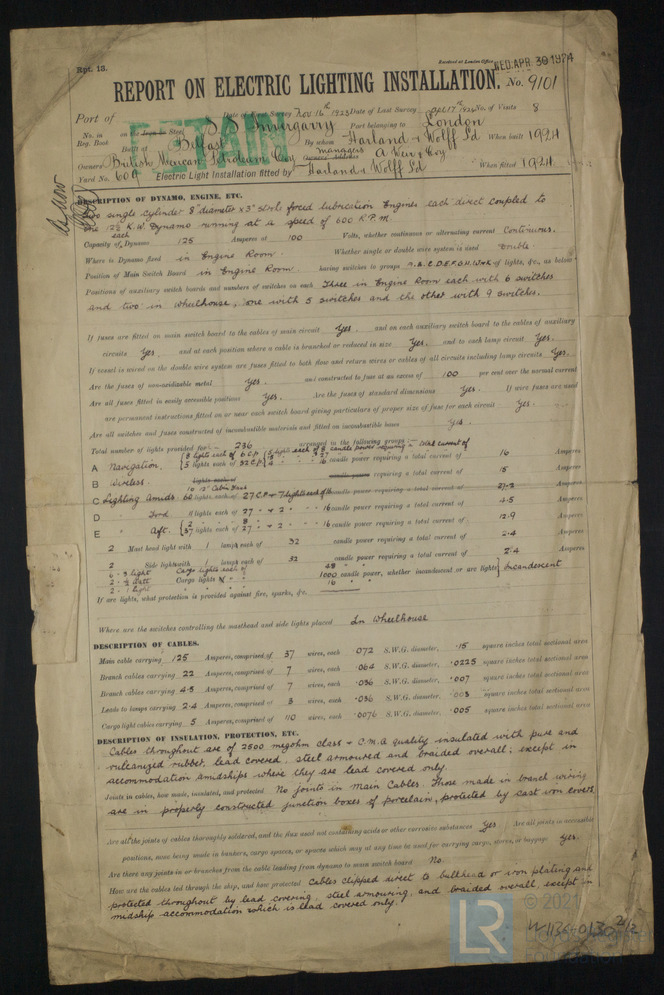 Rpt. 13.
Received at London Office WED. APR. 30 1924
REPORT ON ELECTRIC LIGHTING INSTALLATION. No. 9101
Port of Date of First Survey Nov 16th 1923 Date of Last Survey Apl 17th 1924 No. of Visits 8
No. in Reg. Book on the Iron or Steel S.S. Inverargarry Port belonging to London
Built at Belfast By whom Harland & Wolff Ld When built 1924
Owners British Mexican Petroleum Coy Managers A Weir & Coy Owners' Address
Yard No. 609 Electric Light Installation fitted by Harland & Wolff Ld When fitted 1924
RETAIN
DESCRIPTION OF DYNAMO, ENGINE, ETC.
single cylinder 8" diameter x 5" stroke forced lubrication Engines each direct coupled to
12½ K.W. Dynamo running at a speed of 600 R.P.M.
Capacity of each Dynamo 125 Amperes at 100 Volts, whether continuous or alternating current Continuous.
Where is Dynamo fixed in Engine Room. Whether single or double wire system is used Double.
Position of Main Switch Board in Engine Room having switches to groups A.B.C.D.E.F.G.H.W&K of lights, &c., as below
Positions of auxiliary switch boards and numbers of switches on each Three in Engine Room each with 6 switches
and two in wheelhouse, one with 5 switches and the other with 9 switches.
If fuses are fitted on main switch board to the cables of main circuit Yes. and on each auxiliary switch board to the cables of auxiliary
circuits Yes. and at each position where a cable is branched or reduced in size Yes. and to each lamp circuit Yes.
If vessel is wired on the double wire system are fuses fitted to both flow and return wires or cables of all circuits including lamp circuits Yes.
Are the fuses of non-oxidizable metal Yes. and constructed to fuse at an excess of 100 per cent over the normal current
Are all fuses fitted in easily accessible positions Yes. Are the fuses of standard dimensions Yes. If wire fuses are used
are permanent instructions fitted on or near each switch board giving particulars of proper size of fuse for each circuit Yes.
Are all switches and fuses constructed of incombustible materials and fitted on incombustible bases Yes.
Total number of lights provided for 236 arranged in the following groups :—
A Navigation. 8 lights each of 6 C.P. 5 lights each of 32 C.P. candle power requiring a total current of 16 Amperes
B Wireless. lights each of candle power requiring a total current of 15 Amperes
10 12" Cabin Fans
C Lighting Amids. 60 lights each of 27 C.P. + 7 lights each of candle power requiring a total current of 27.2 Amperes
D " Ford. 8 lights each of 27 " + 2 " " 16 candle power requiring a total current of 4.5 Amperes
E " Aft. 37 lights each of 27 " + 2 " " 16 candle power requiring a total current of 12.9 Amperes
2 Mast head light with 1 lamps each of 32 candle power requiring a total current of 2.4 Amperes
2 Side light with 1 lamps each of 32 candle power requiring a total current of 2.4 Amperes
6 - 3 light Cargo lights each of 48
2 - ½ Watt Cargo lights of 1000 candle power, whether incandescent or arc lights Incandescent
2 - 1 light " " 16
If arc lights, what protection is provided against fire, sparks, &c.
Where are the switches controlling the masthead and side lights placed In Wheelhouse
DESCRIPTION OF CABLES.
Main cable carrying 125 Amperes, comprised of 37 wires, each .072 S.W.G. diameter, .15 square inches total sectional area
Branch cables carrying 22 Amperes, comprised of 7 wires, each .064 S.W.G. diameter, .0225 square inches total sectional area
Branch cables carrying 4.5 Amperes, comprised of 7 wires, each .036 S.W.G. diameter, .007 square inches total sectional area
Leads to lamps carrying 2.4 Amperes, comprised of 3 wires, each .036 S.W.G. diameter, .003 square inches total sectional area
Cargo light cables carrying 5 Amperes, comprised of 110 wires, each .0076 S.W.G. diameter, .005 square inches total sectional area
DESCRIPTION OF INSULATION, PROTECTION, ETC.
Cables throughout are of 2500 megohm class & C.M.A quality insulated with pure and
vulcanized rubber, lead covered, steel armoured and braided overall; except in
accommodation amidships where they are lead covered only.
Joints in cables, how made, insulated, and protected No joints in Main Cables. Those made in branch wiring
are in properly constructed junction boxes of porcelain, protected by cast iron covers
Are all the joints of cables thoroughly soldered, and the flux used not containing acids or other corrosive substances Yes. Are all joints in accessible
positions, none being made in bunkers, cargo spaces, or spaces which may at any time be used for carrying cargo, stores, or baggage Yes.
Are there any joints in or branches from the cable leading from dynamo to main switch board No.
How are the cables led through the ship, and how protected Cables clipped direct to bulkhead or iron plating and
protected throughout by lead covering, steel armouring, and braided overall, except in
midship accommodation which is lead covered only.
© 2021
LR
W1136-0130 2/2